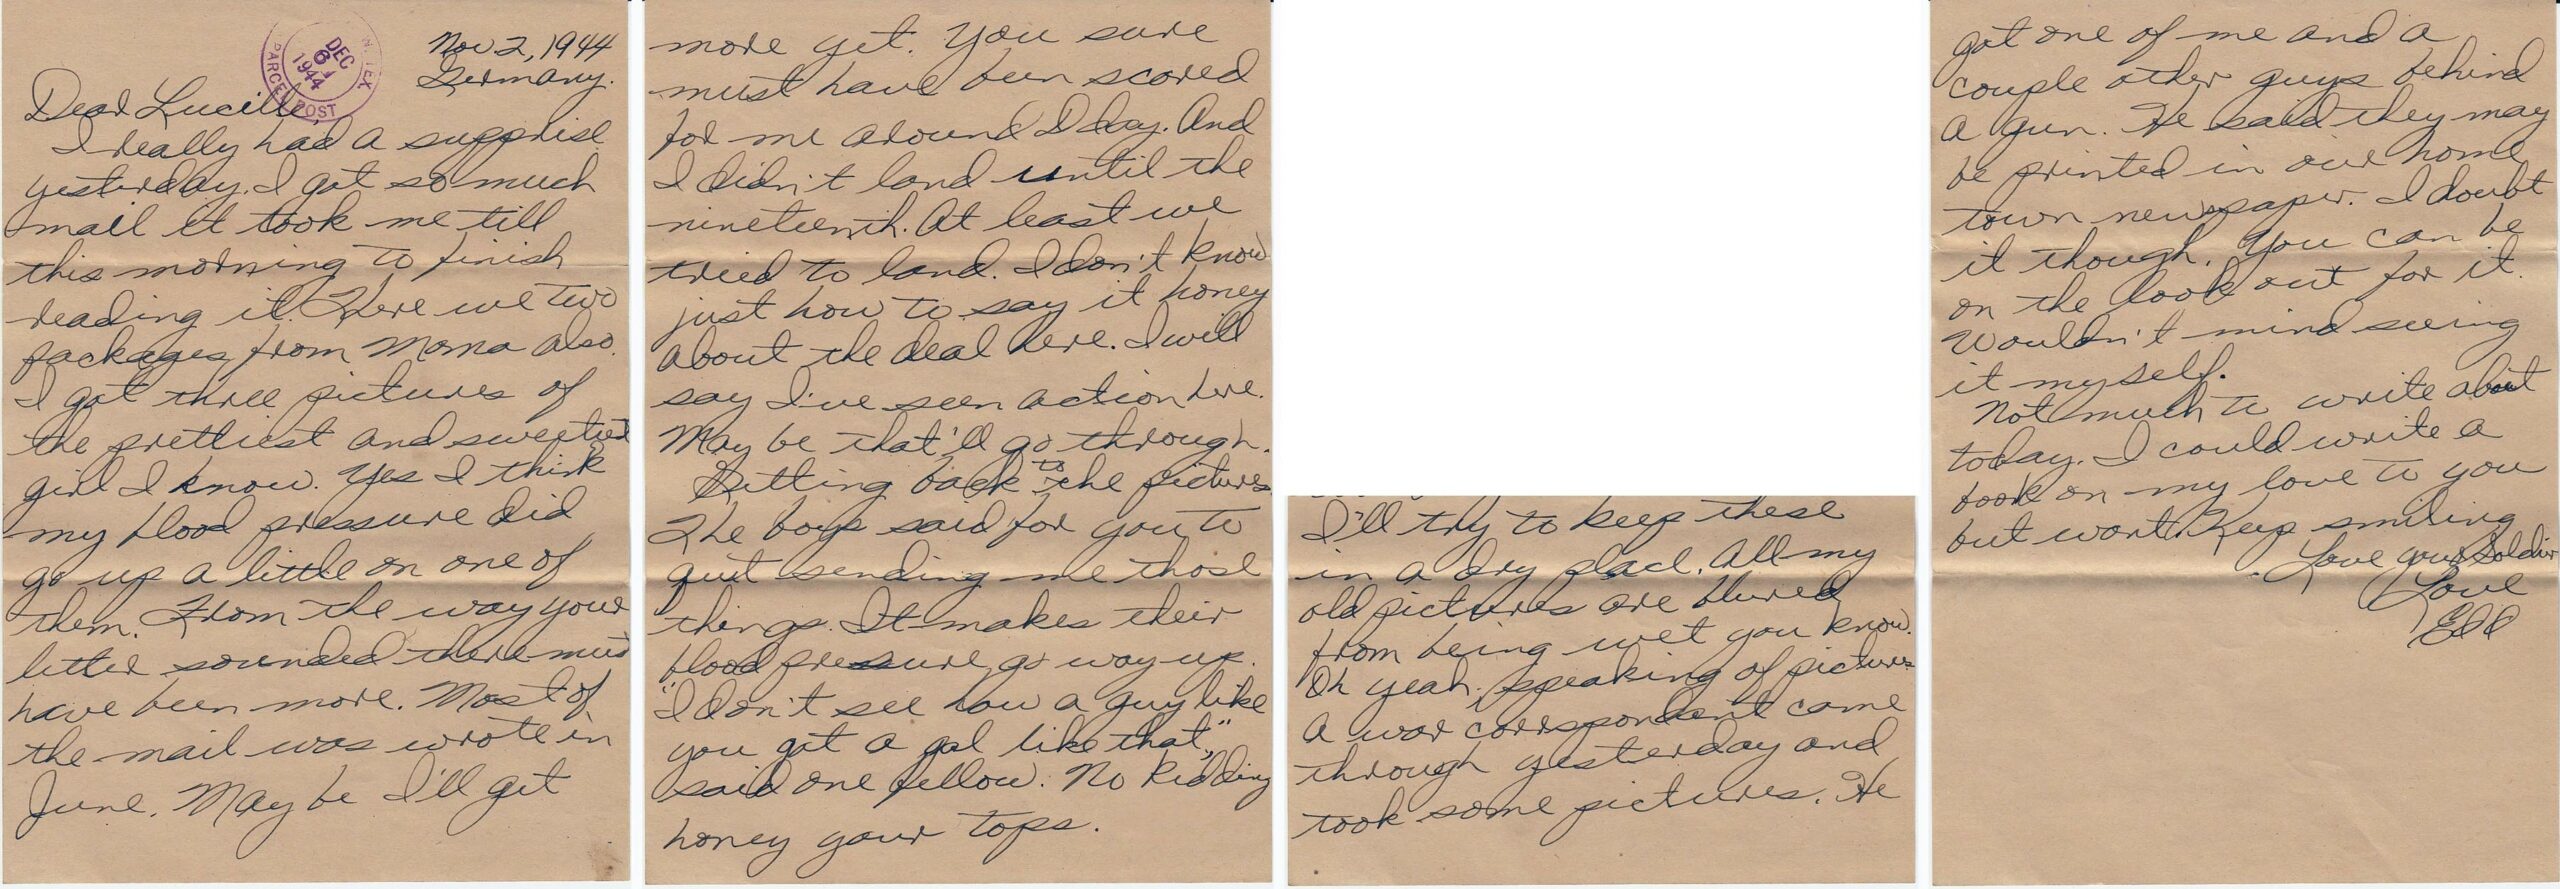 Nov 2, 1944
Germany.
DEC
6
1944
PARCEL POST
TEX.
Dear Lucille,
I really had a supprise
yesterday. I got so much
mail it took me till
this morning to finish
reading it. Here we two
packages from Moma also.
I got three pictures of
the prettiest and sweetiest
girl I know. Yes I think
my blood pressure did
go up a little on one of
them. From the way your
letter sounded there must
have been more. Most of
the mail was wrote in
June. May be I'll get
more yet. You sure
must have been scared
for me around D day. And
I didn't land until the
nineteenth. At least we
tried to land. I don't know
just how to say it honey
about the deal here. I will
say I've seen action here.
May be that'll go through.
Getting back to the pictures
The boys said for you to
quit sending me those
things. It makes their
blood pressure go way up.
"I don't see how a guy like
you got a gal like that,"
said one fellow. No kidding
honey your tops.
I'll try to keep these
in a dry place. All my
old pictures are blured
from being wet you know.
Oh yeah, speaking of pictures
a war correspondent came
through yesterday and
took some pictures. He
got one of me and a
couple other guys behind
a gun. He said they may
be printed in our home
town newspaper. I doubt
it though. You can be
on the look out for it.
Wouldn't mind seeing
it myself.
Not much to write about
today. I could write a
book on my love to you
but wont. Keep smiling
Love your soldier
Love